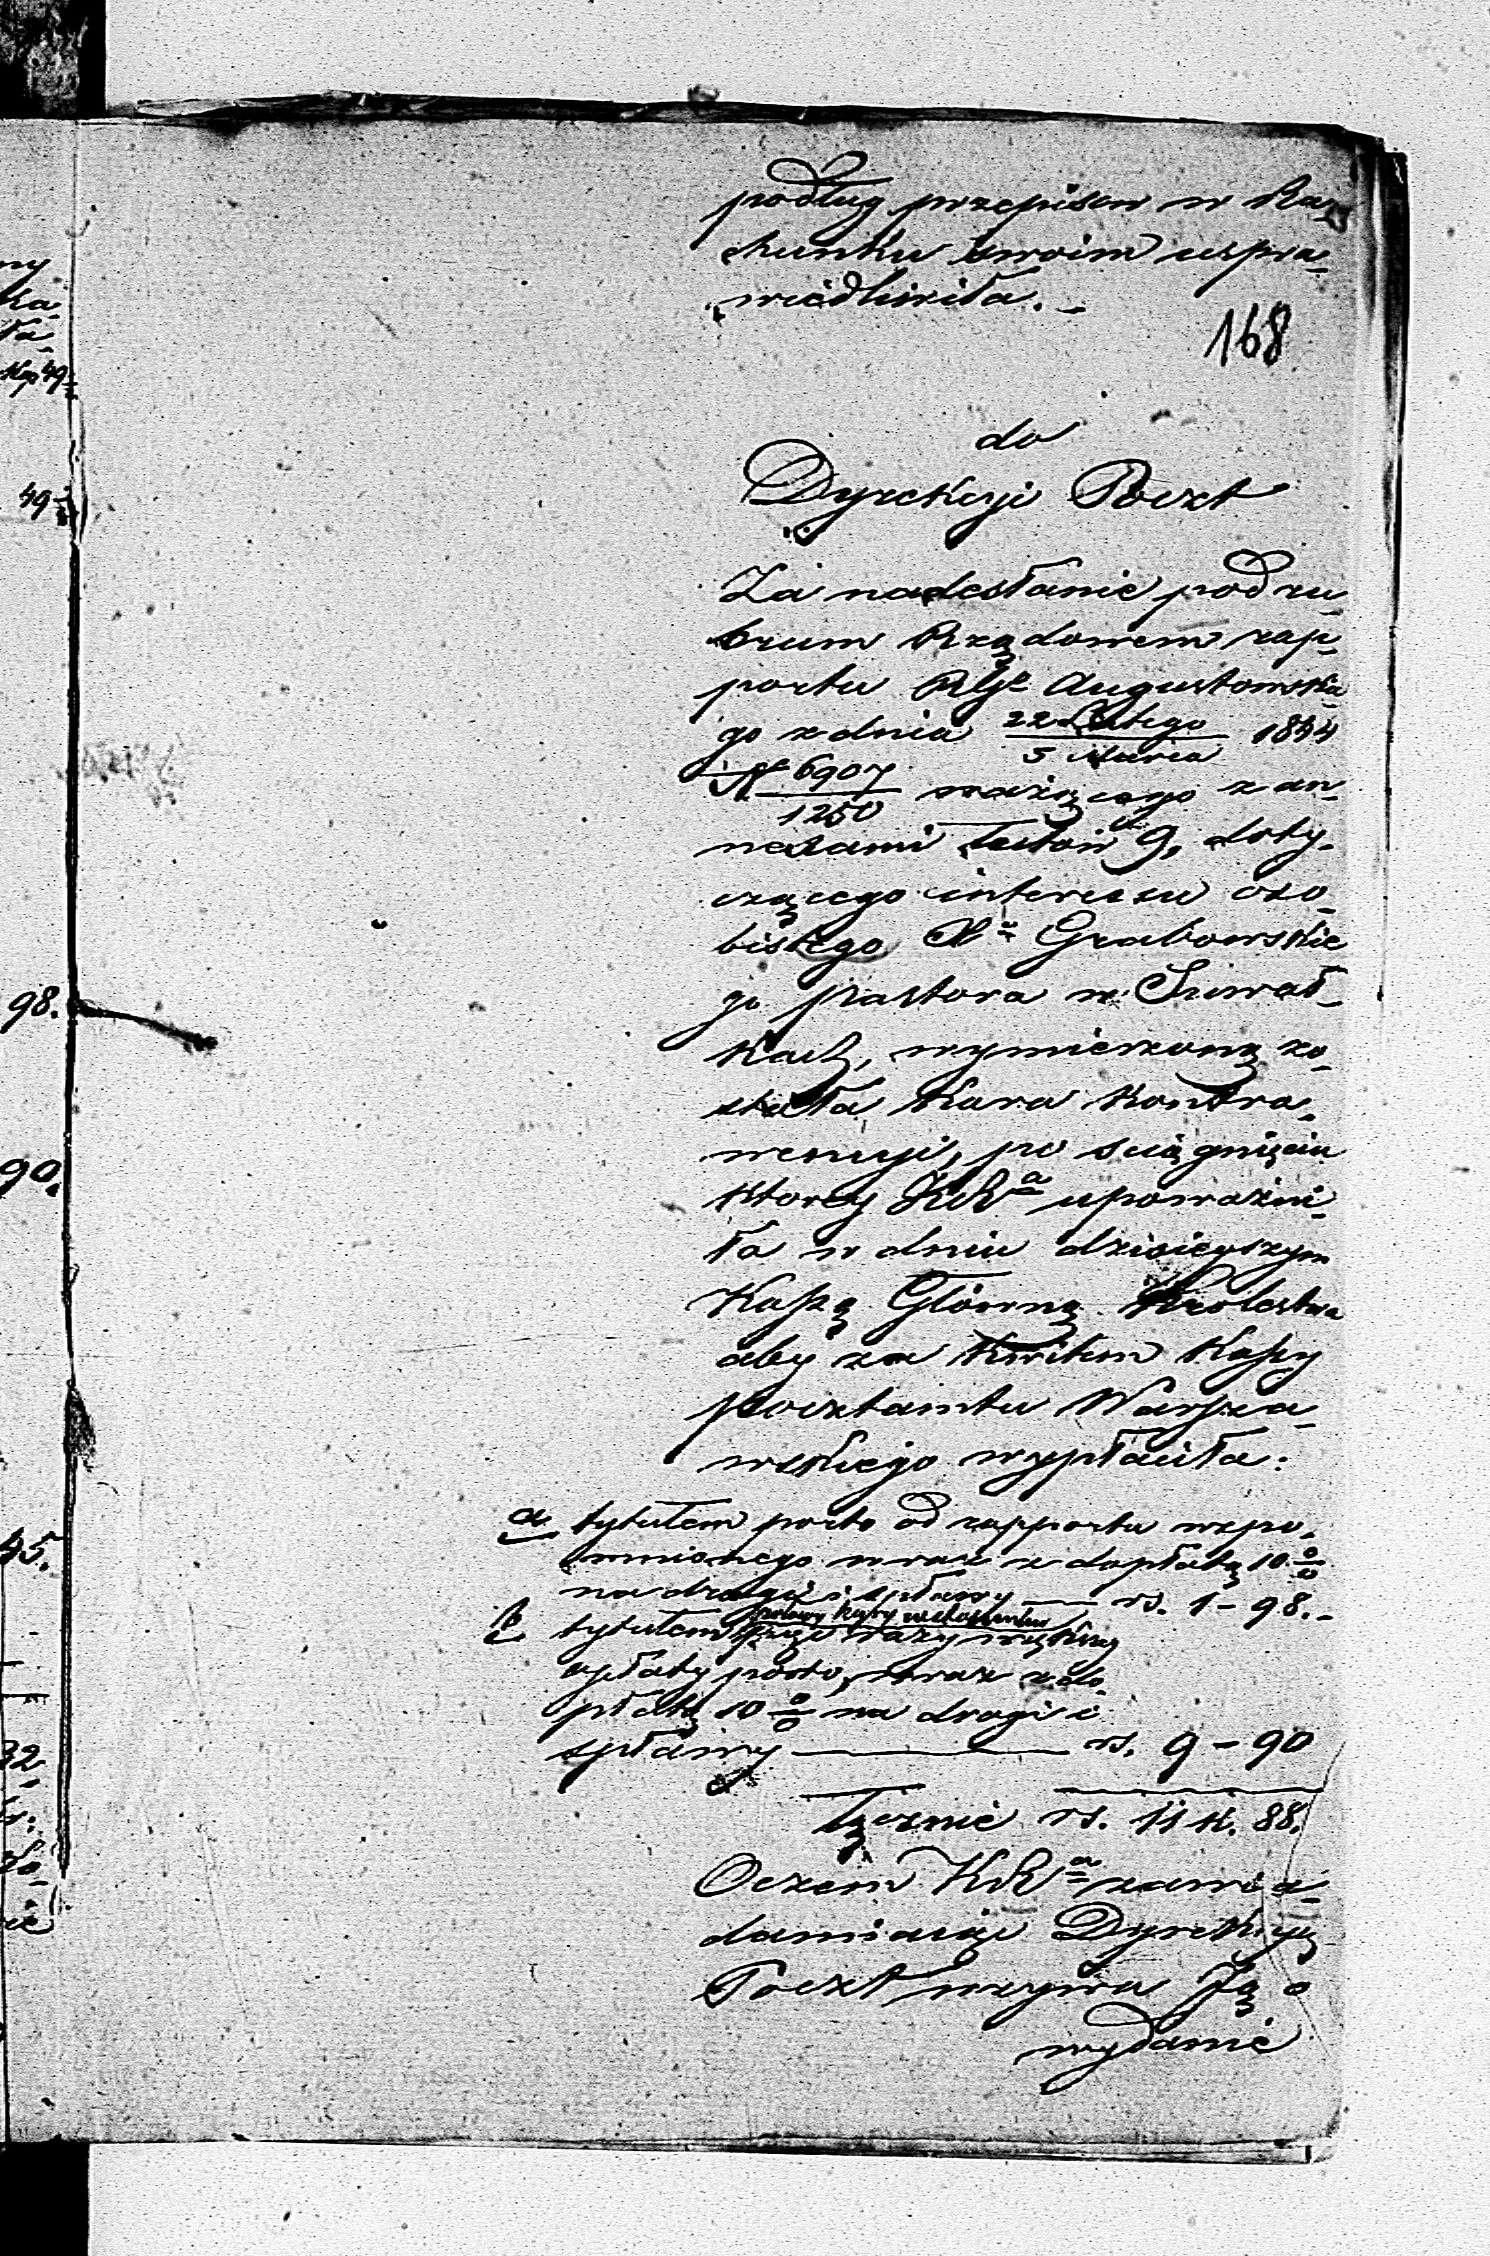 podług przepisow w Ra-
chunku swoim uspra-
wiedliwiła. -
168
do
Dyrekcji Poczt
Za nadesłanie pod ru-
brum Rządowem rap-
portu RGo Augustowskie-
go z dnia 22 Lutego / 5 Marca 1844
N 6907 / 1250 ważącego z an-
nexami łutów 9, doty-
czącego interesu oso-
bistego Xa Grabowskie
go pastora w Suwał-
kach, wymierzoną zo-
stała kara kontra-
wencyi, po sciągnięciu
ktorey KRa upoważni-
ła w dniu dzisieyszym
Kassę Główną Krolestwa
aby za kwitem Kassy
pocztamtu Warsza-
wskiego wypłaciła:
a tytułem porto od rapportu wspo-
mnionego wraz z dopłatą 10 %
na drogi i spławy — rs. 1 - 98. -
b tytułem
opłaty porto, wraz z do-
płatą 10 % na drogi i
spławy — rs. 9 - 90
Łącznie rs. 11 k. 88.
Oczem KRa zawia-
damiaiąc Dyrekcyą
Poczt wzywa Ją o
wydanie
ny
ka-
ła-
Kop 49
49
98.
90.
45.
32